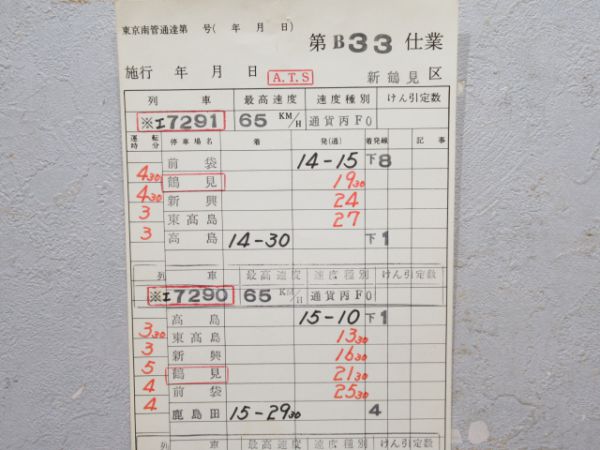 東京南管通達第 号( 年 月 日)
第 B33 仕業
施行 年 月 日 A.T.S 新鶴見区
列 車 最高速度 速度種別 けん引定数
※エ7291 65 KM/H 通貨丙F0
運転時分 停車場名 着 発(通) 着発線 記事
前袋 14-15 下8
430 鶴見 1930
430 新興 24
3 東高島 27
3 高島 14-30 下1
列 車 最高速度 速度種別 けん引定数
※エ7290 65 KM/H 通貨丙F0
高島 15-10 下1
330 東高島 1330
3 新興 1630
5 鶴見 2130
4 前袋 2530
4 鹿島田 15-2930 4
列 車 最高速度 速度種別 けん引定数